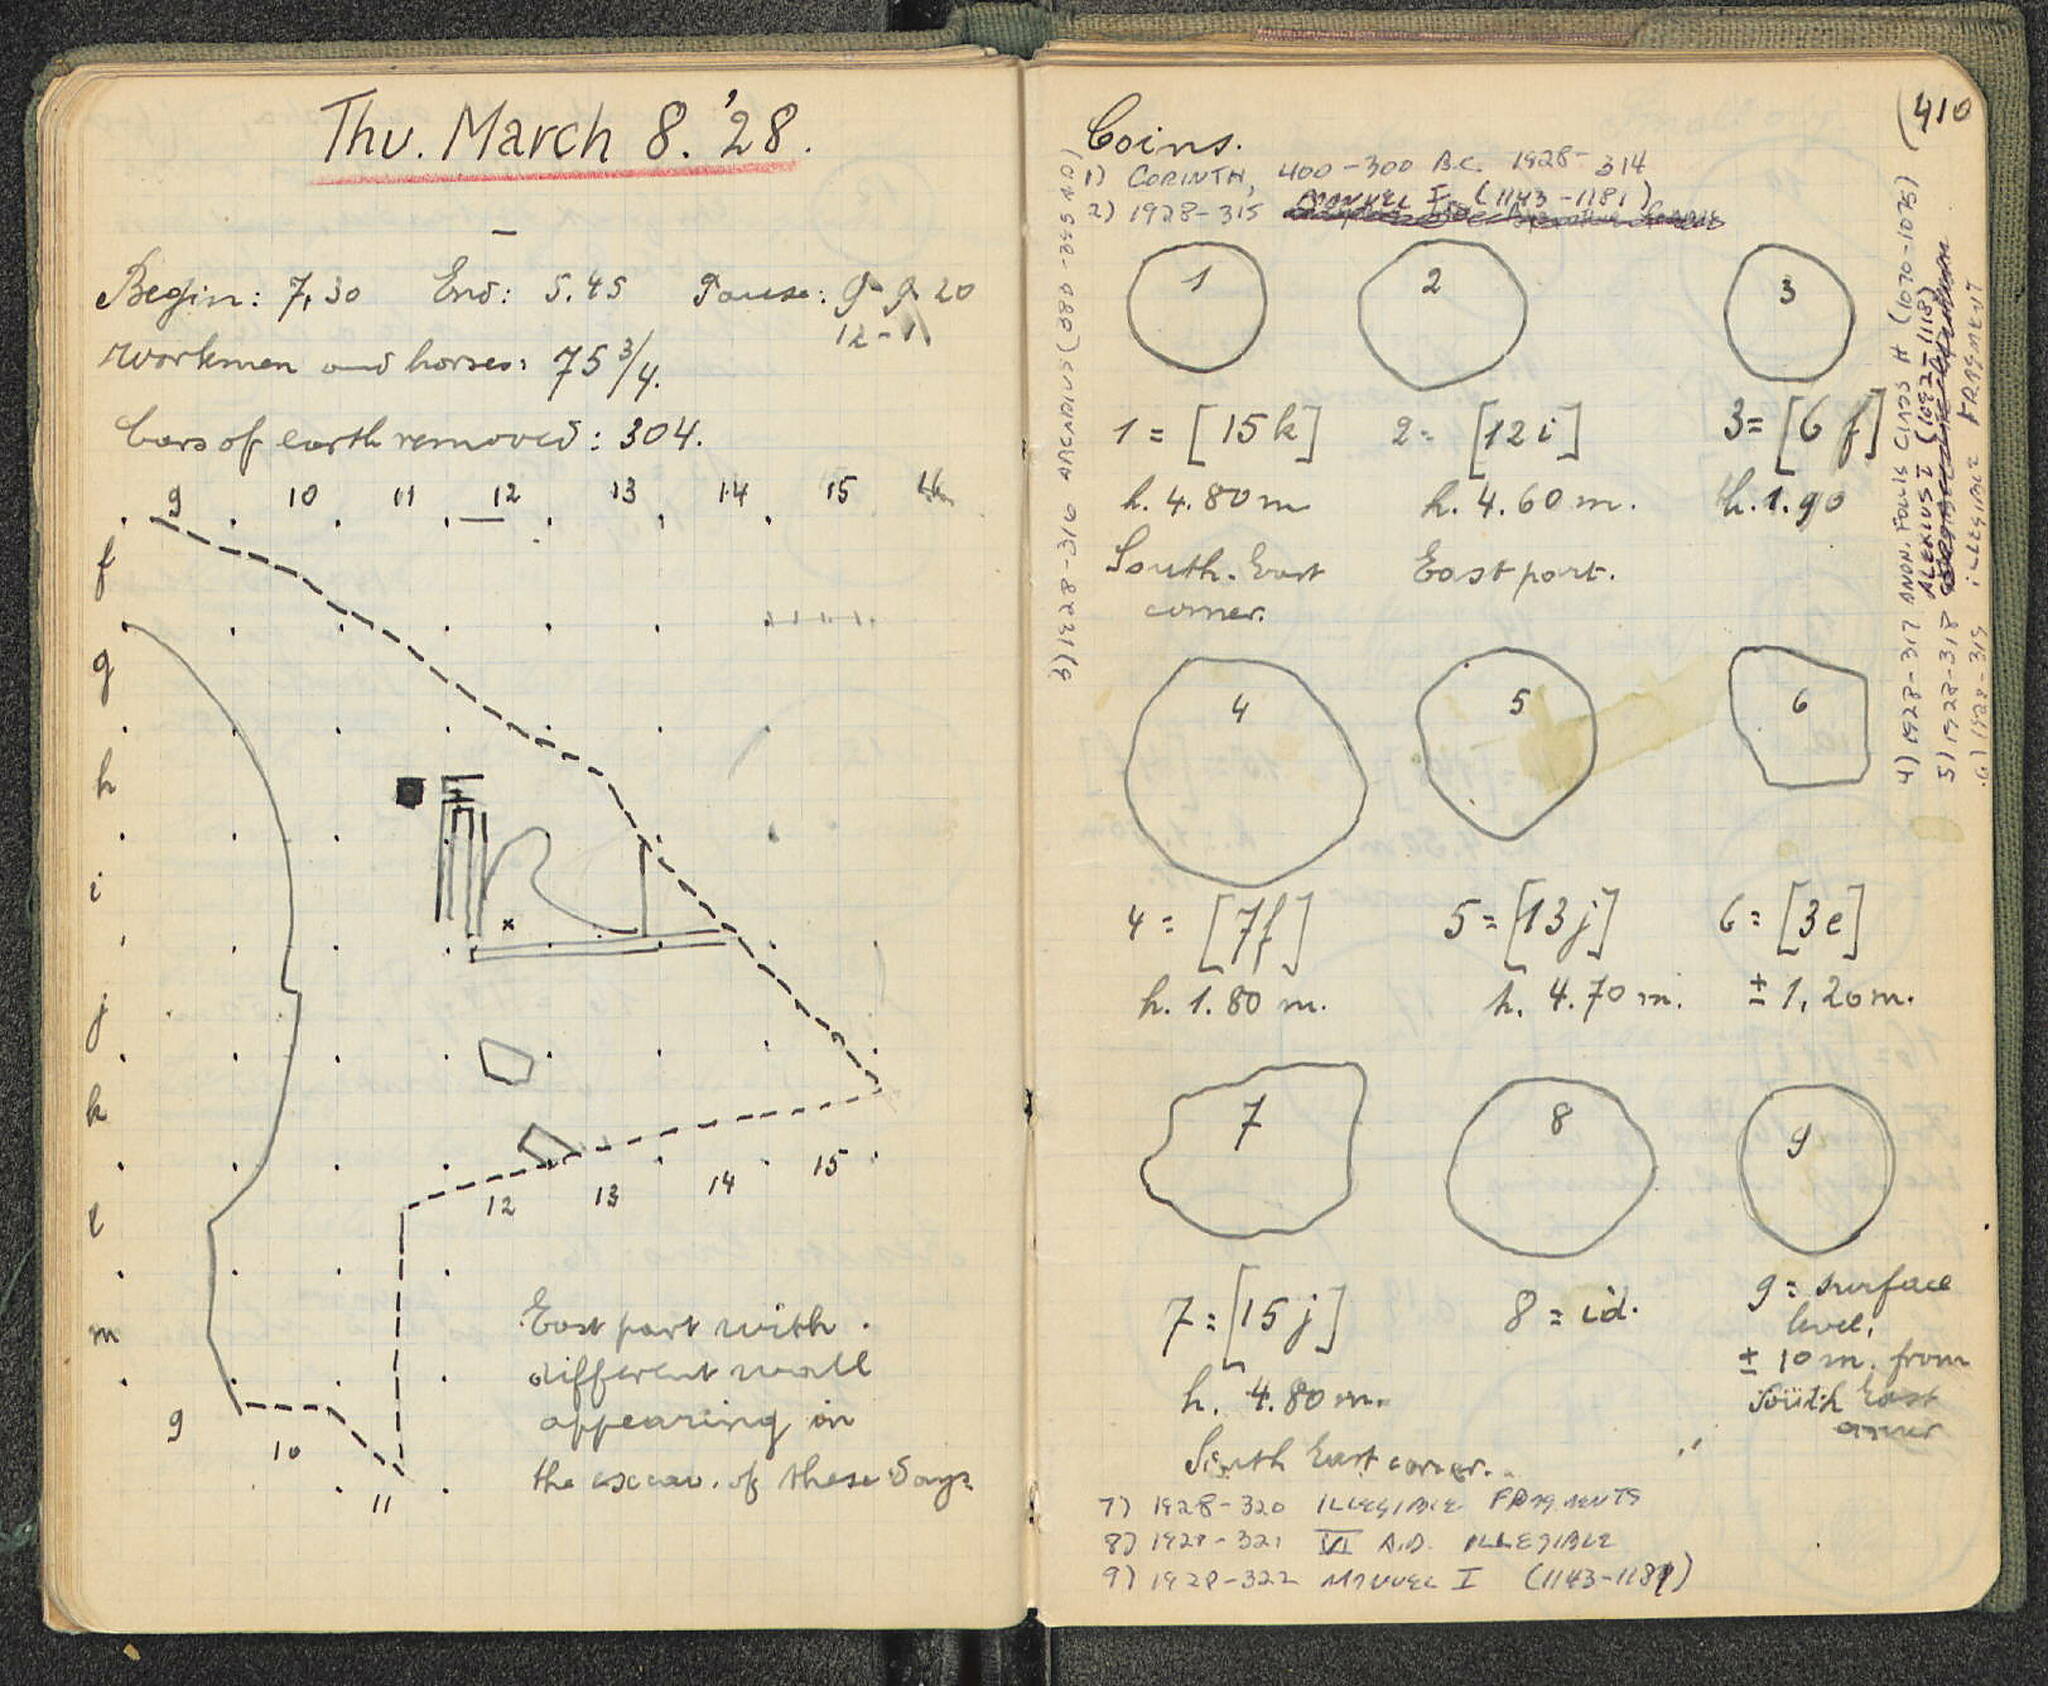 Thu. March 8. '28.
Begin: 7,30 End: 5.45 Pause: 9-9.20
12-1
Workmen and horses: 75 3/4.
Cars of earth removed: 304.
9 10 11 12 13 14 15 16
f
g
h
i
j
k
l
m
12 13 14 15
9 10 11
East part with
different wall
appearing in
the excav. of these days
(410
Coins.
1) CORINTH, 400-300 B.C. 1928-314
2) 1928-315 MANUEL I (1143-1181)
3) 1928-316 ARCADIUS (383-395 AD)
4) 1928-317 ANON. FOLLIS CLASS H (1070-1075)
5) 1928-318 ALEXIUS I (1092-1118)
6) 1928-319 ILLEGIBLE FRAGMENT
1 2 3
1 = [15k] 2 = [12i] 3 = [6f]
h. 4.80 m h. 4.60 m. h. 1.90
South-East East part.
corner.
4 5 6
4 = [7f] 5 = [13j] 6 = [3e]
h. 1.80 m. h. 4.70 m. ± 1,20 m.
7 8 9
7 = [15j] 8 = id. 9 = surface
level,
h. 4.80 m. ± 10 m. from
South East corner. South East
corner
7) 1928-320 ILLEGIBLE FRAGMENTS
8) 1928-321 VI A.D. ILLEGIBLE
9) 1928-322 MANUEL I (1143-1181)